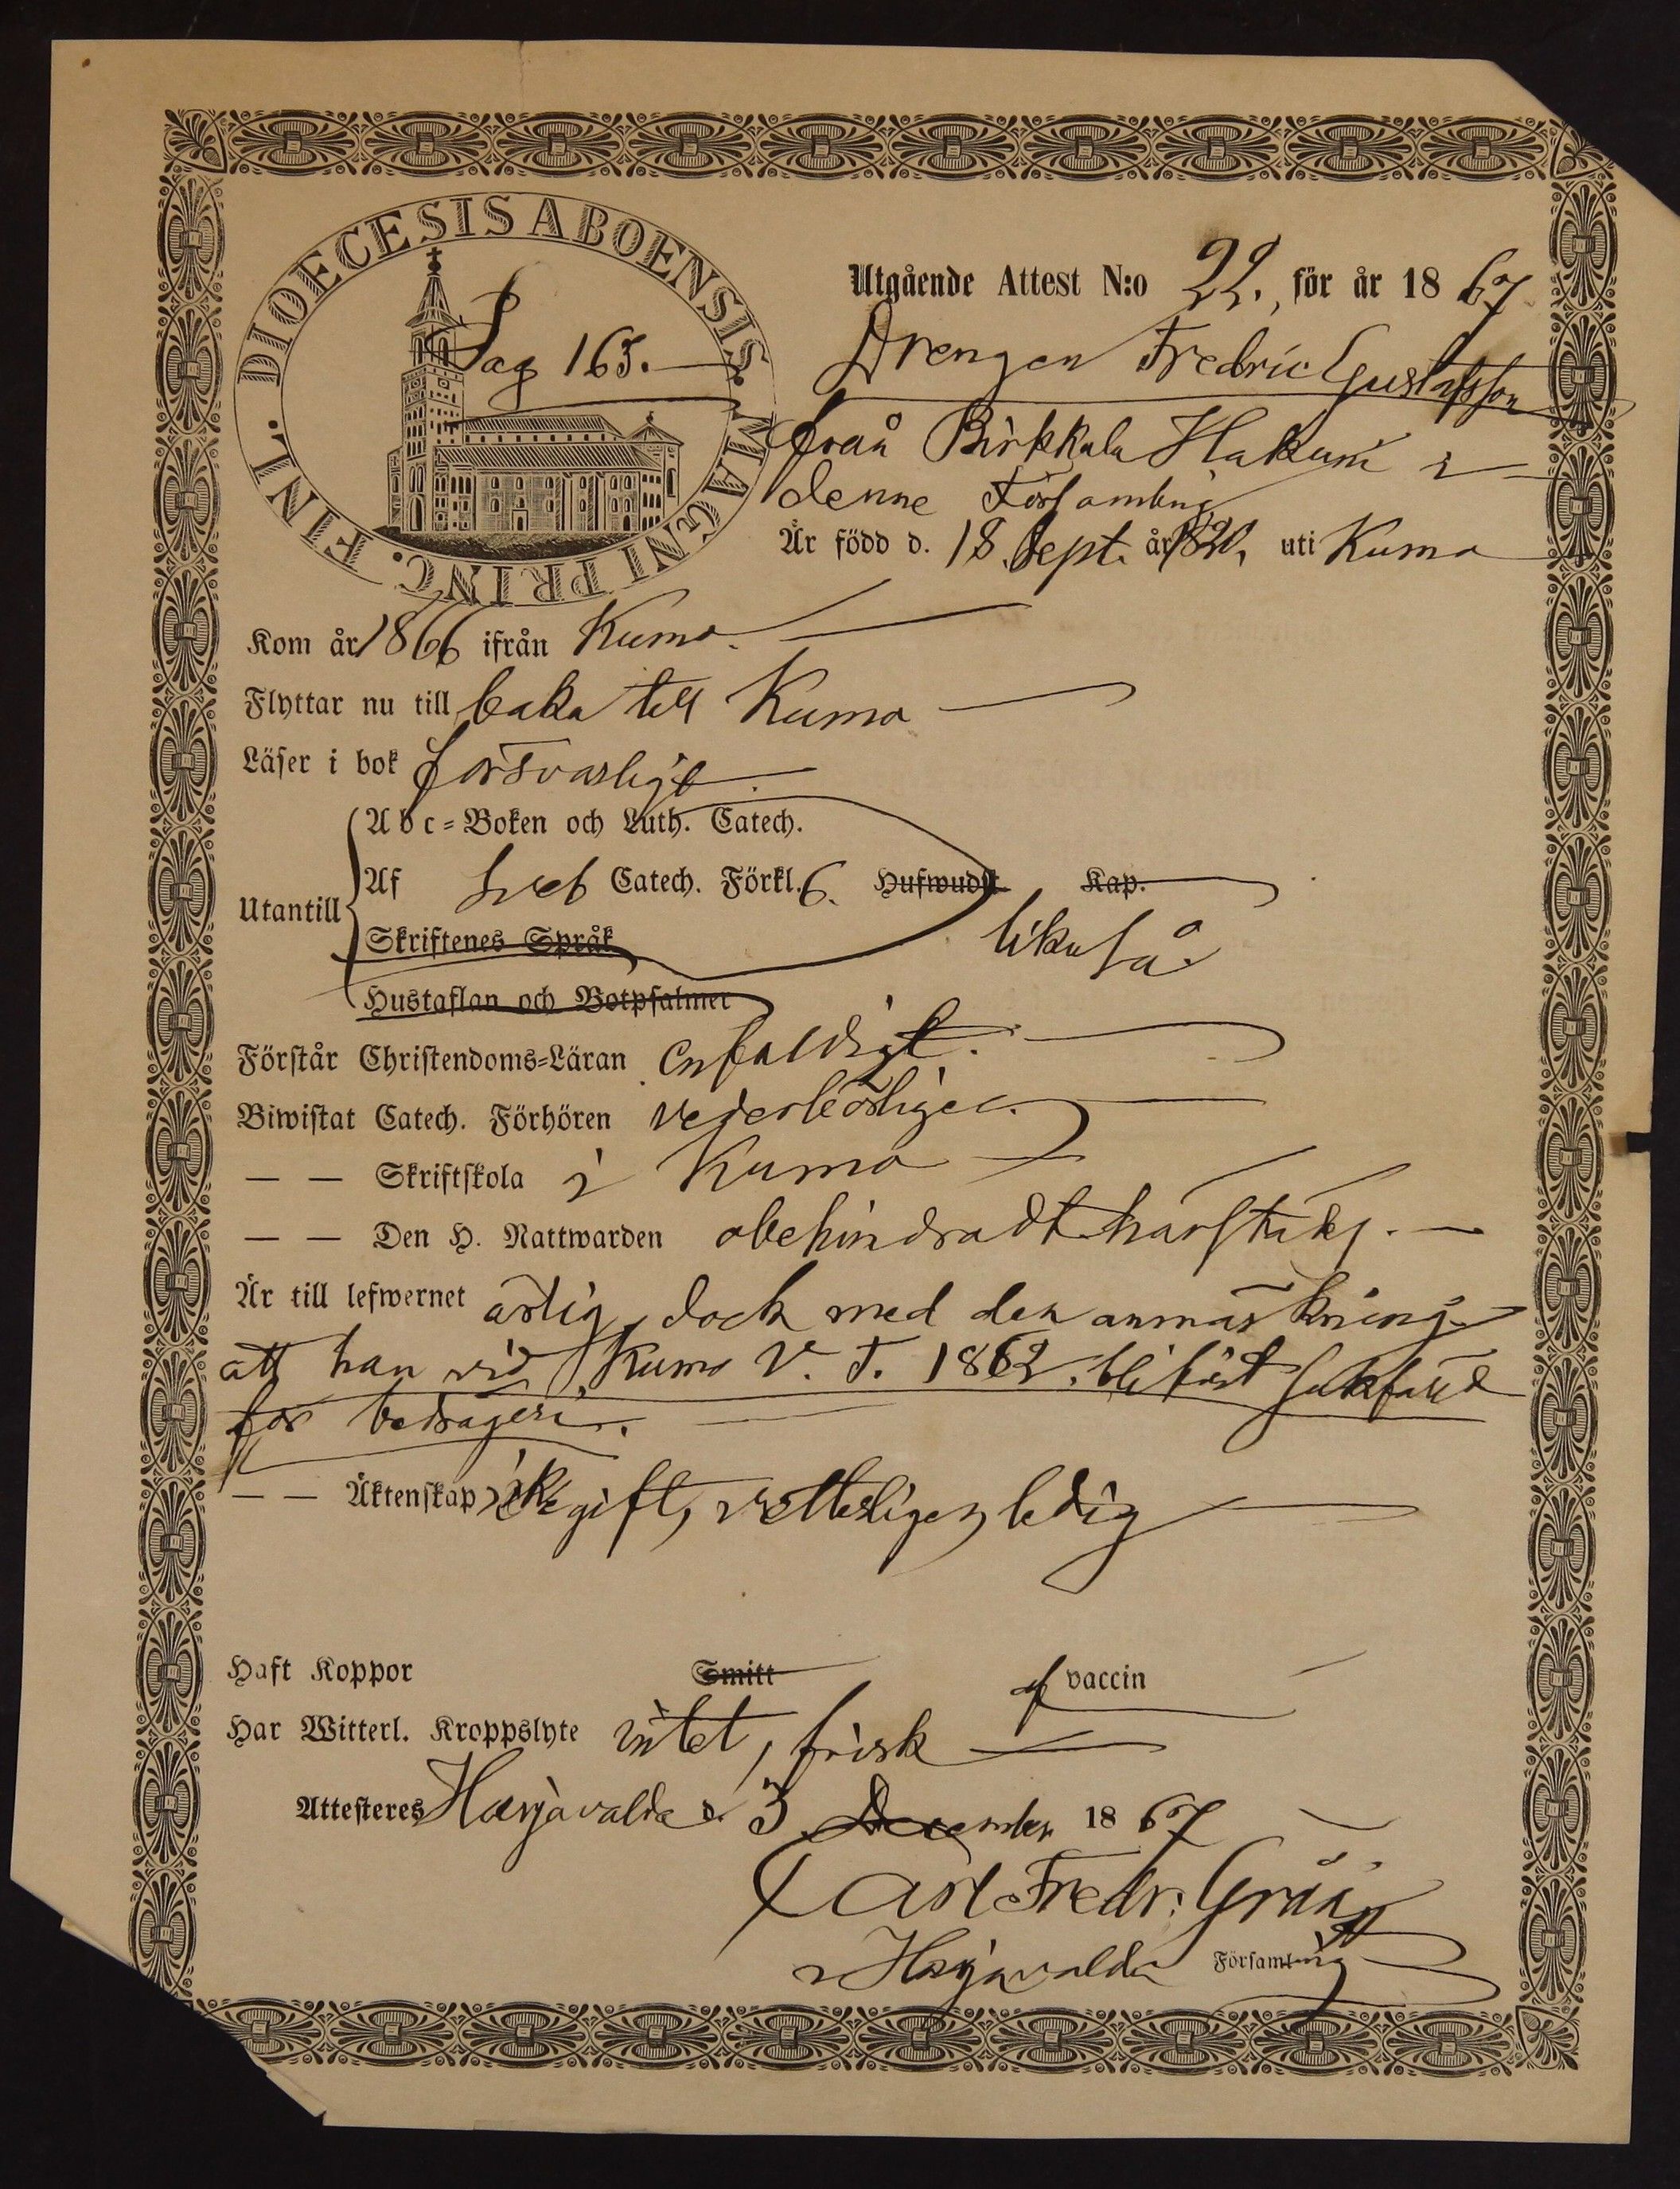 DIOECESIS ABOENSIS. MAGNI PRINC. FINL.
Pag 165.
Utgående Attest N:o 22. för år 1867
Drengen Fredric Gustafsson
från Pirkkala Hakuni i
denne Församling
Är född d. 18 Sept. år 1820, uti Kumo
Kom år 1866 ifrån Kumo.
Flyttar nu till baka till Kumo
Läser i bok försvarligt.
Abc-Boken och Luth. Catech.
Utantill
Af Sveb Catech. Förkl. 6. Hufwudst. Kap.
Skriftenes Språk
likaså
Hustaflan och Botpsalmer
Förstår Christendoms-Läran enfaldigt.
Biwistat Catech. Förhören vederbörligen.
— — Skriftskola i Kumo
— — Den H. Nattwarden obehindradt
Är till lefwernet ärlig, dock med den anmärkning
att han vid Kumo V. T. 1862 blifvit sakfäld
för bedrägeri.
— — Äktenskap icke gift, ledig
Haft Koppor Smitt af vaccin
Har Witterl. Kroppslyte intet, frisk
Attesteres Harjavalda d. 3 December 1867
Carl Fredr. Grään
i Harjavalda Församling